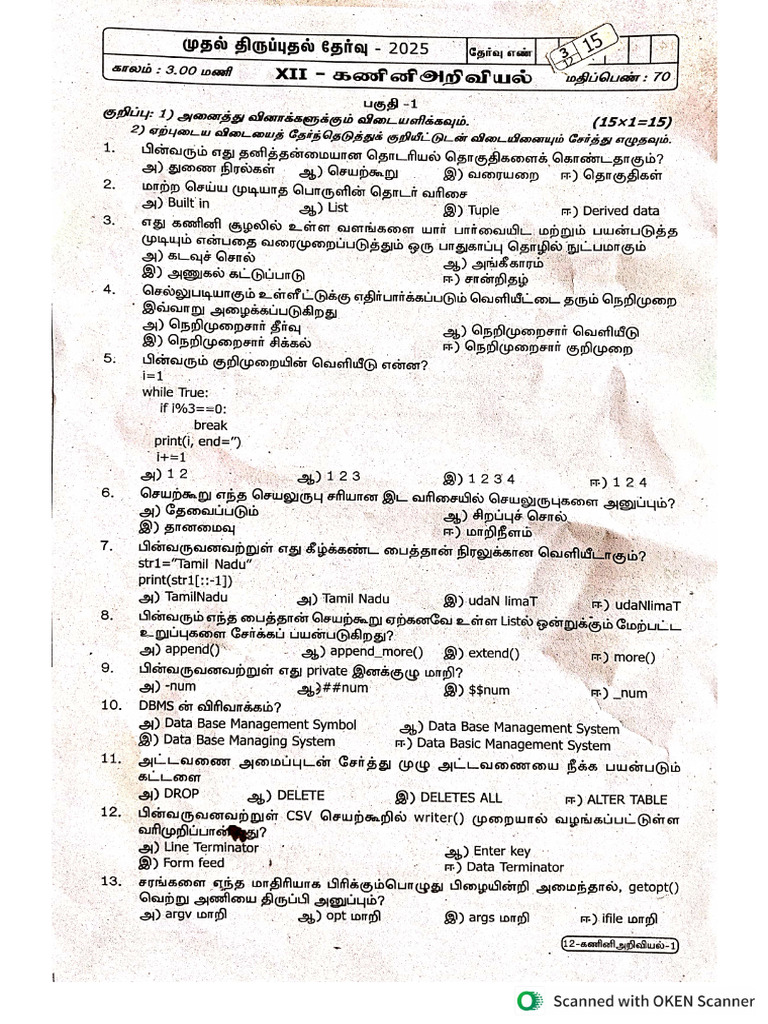 முதல் திருப்புதல் தேர்வு - 2025
தேர்வு எண்
3/12 15
காலம் : 3.00 மணி XII – கணினிஅறிவியல் மதிப்பெண் : 70
பகுதி -1
குறிப்பு: 1) அனைத்து வினாக்களுக்கும் விடையளிக்கவும். (15×1=15)
2) ஏற்புடைய விடையைத் தேர்ந்தெடுத்துக் குறியீட்டுடன் விடையினையும் சேர்த்து எழுதவும்.
1. பின்வரும் எது தனித்தன்மையான தொடரியல் தொகுதிகளைக் கொண்டதாகும்?
அ) துணை நிரல்கள் ஆ) செயற்கூறு இ) வரையறை ஈ) தொகுதிகள்
2. மாற்ற செய்ய முடியாத பொருளின் தொடர் வரிசை
அ) Built in ஆ) List இ) Tuple ஈ) Derived data
3. எது கணினி சூழலில் உள்ள வளங்களை யார் பார்வையிட மற்றும் பயன்படுத்த
முடியும் என்பதை வரைமுறைப்படுத்தும் ஒரு பாதுகாப்பு தொழில் நுட்பமாகும்
அ) கடவுச் சொல் ஆ) அங்கீகாரம்
இ) அணுகல் கட்டுப்பாடு ஈ) சான்றிதழ்
4. செல்லுபடியாகும் உள்ளீட்டுக்கு எதிர்பார்க்கப்படும் வெளியீட்டை தரும் நெறிமுறை
இவ்வாறு அழைக்கப்படுகிறது
அ) நெறிமுறைசார் தீர்வு ஆ) நெறிமுறைசார் வெளியீடு
இ) நெறிமுறைசார் சிக்கல் ஈ) நெறிமுறைசார் குறிமுறை
5. பின்வரும் குறிமுறையின் வெளியீடு என்ன?
i=1
while True:
if i%3==0:
break
print(i, end=”)
i+=1
அ) 1 2 ஆ) 1 2 3 இ) 1 2 3 4 ஈ) 1 2 4
6. செயற்கூறு எந்த செயலுருபு சரியான இட வரிசையில் செயலுருபுகளை அனுப்பும்?
அ) தேவைப்படும் ஆ) சிறப்புச் சொல்
இ) தானமைவு ஈ) மாறிநீளம்
7. பின்வருவனவற்றுள் எது கீழ்க்கண்ட பைத்தான் நிரலுக்கான வெளியீடாகும்?
str1=”Tamil Nadu“
print(str1[::-1])
அ) TamilNadu அ) Tamil Nadu இ) udaN limaT ஈ) udaNlimaT
8. பின்வரும் எந்த பைத்தான் செயற்கூறு ஏற்கனவே உள்ள Listல் ஒன்றுக்கும் மேற்பட்ட
உறுப்புகளை சேர்க்கப் பயன்படுகிறது?
அ) append() ஆ) append_more() இ) extend() ஈ) more()
9. பின்வருவனவற்றுள் எது private இனக்குழு மாறி?
அ) -num ஆ)##num இ) $$num ஈ) _num
10. DBMS ன் விரிவாக்கம்?
அ) Data Base Management Symbol ஆ) Data Base Management System
இ) Data Base Managing System ஈ) Data Basic Management System
11. அட்டவணை அமைப்புடன் சேர்த்து முழு அட்டவணையை நீக்க பயன்படும்
கட்டளை
அ) DROP ஆ) DELETE இ) DELETES ALL ஈ) ALTER TABLE
12. பின்வருவனவற்றுள் CSV செயற்கூறில் writer() முறையால் வழங்கப்பட்டுள்ள
வரிமுறிப்பான் து?
அ) Line Terminator ஆ) Enter key
இ) Form feed ஈ) Data Terminator
13. சரங்களை எந்த மாதிரியாக பிரிக்கும்பொழுது பிழையின்றி அமைந்தால், getopt()
வெற்று அணியை திருப்பி அனுப்பும்?
அ) argv மாறி ஆ) opt மாறி இ) args மாறி ஈ) ifile மாறி
12-கணினிஅறிவியல்-1
Scanned with OKEN Scanner